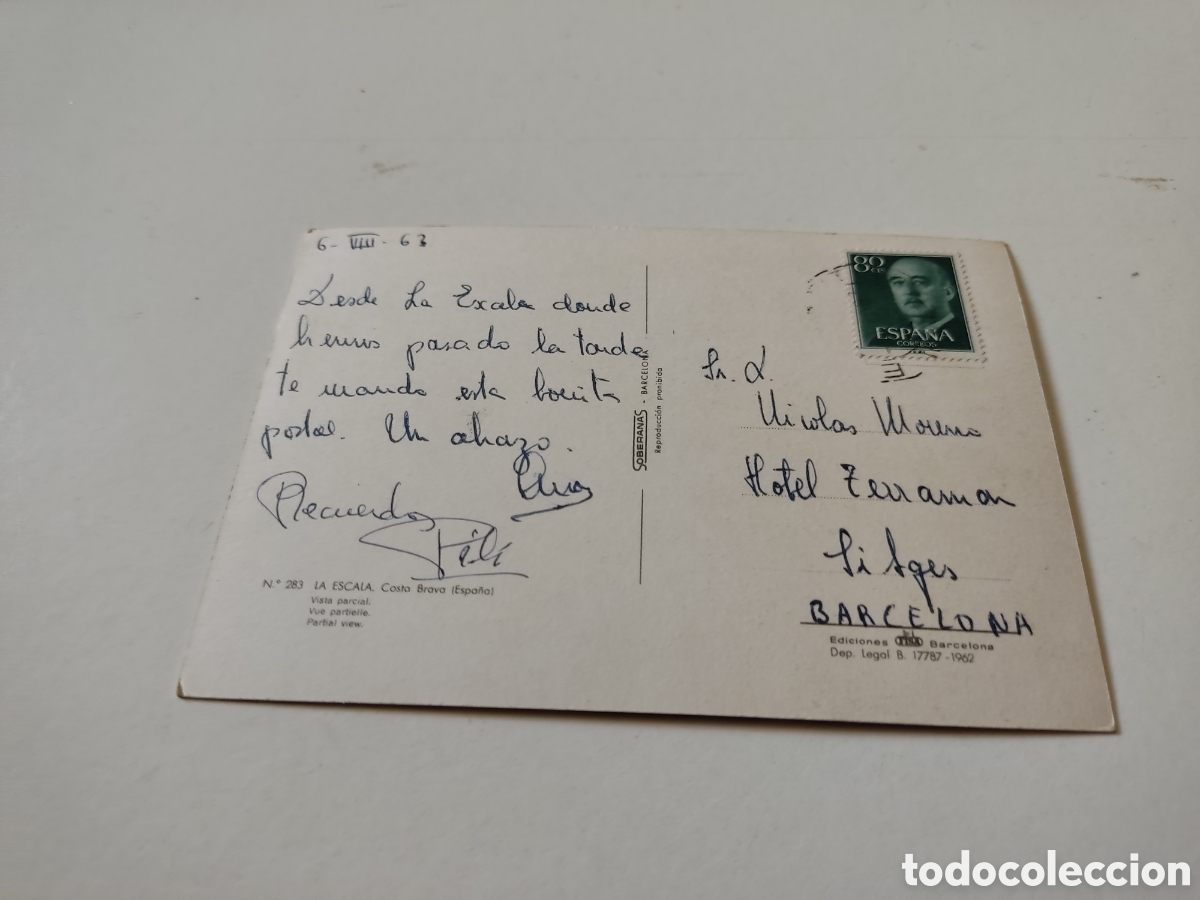 6-VIII-63
Desde La Escala donde
hemos pasado la tarde
te mando esta bonita
postal. Un abrazo.
Recuerdos
Pili
Nº 283 LA ESCALA. Costa Brava (España)
Vista parcial.
Vue partielle.
Partial view.
SOBERANAS - BARCELONA
Reproducción prohibida
80 CTS
ESPAÑA
CORREOS
Sr. D.
Nicolas Moreno
Hotel Terramar
Sitges
BARCELONA
Ediciones Barcelona
Dep. Legal B. 17787-1962
todocoleccion